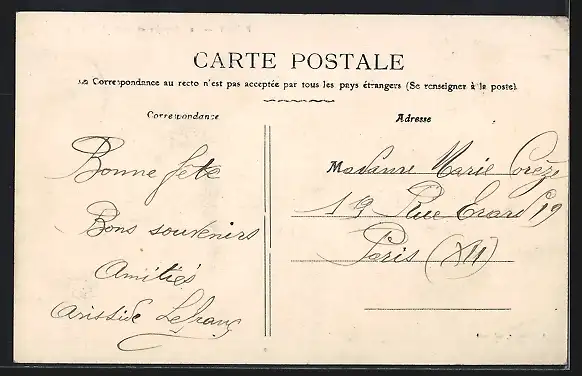 CARTE POSTALE
La Correspondance au recto n'est pas acceptée par tous les pays étrangers (Se renseigner à la poste).
Correspondance
Adresse
Bonne fête
Bons souvenirs
Amitiés
Aristide Lefranc
Madame Marie Corèze
19 Rue Erard 19
Paris (XII)